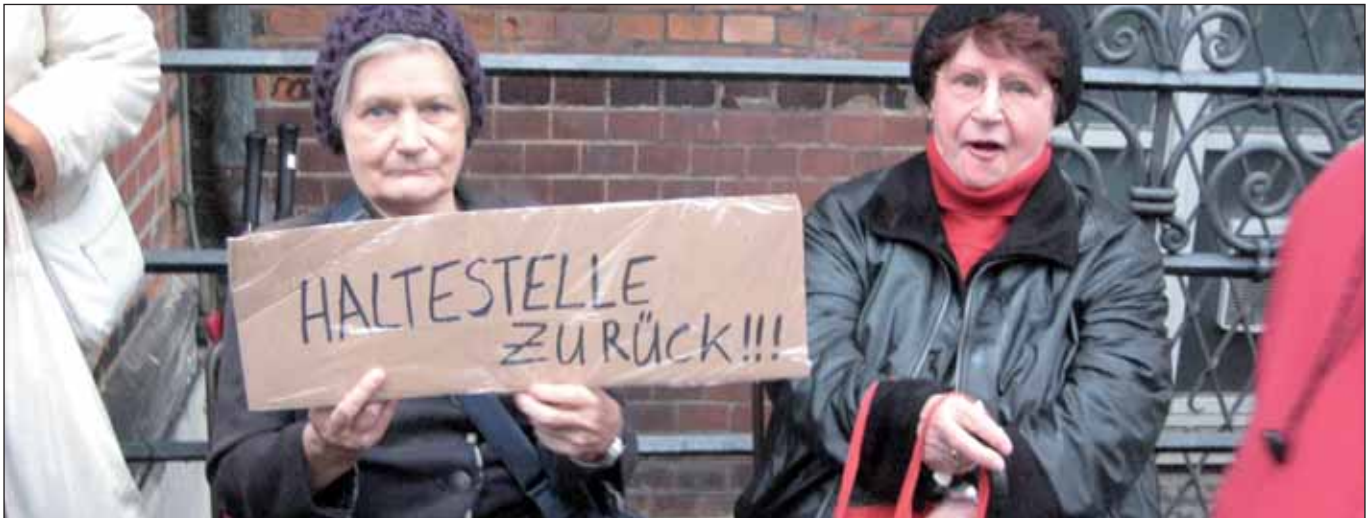 HALTESTELLE
ZURÜCK!!!